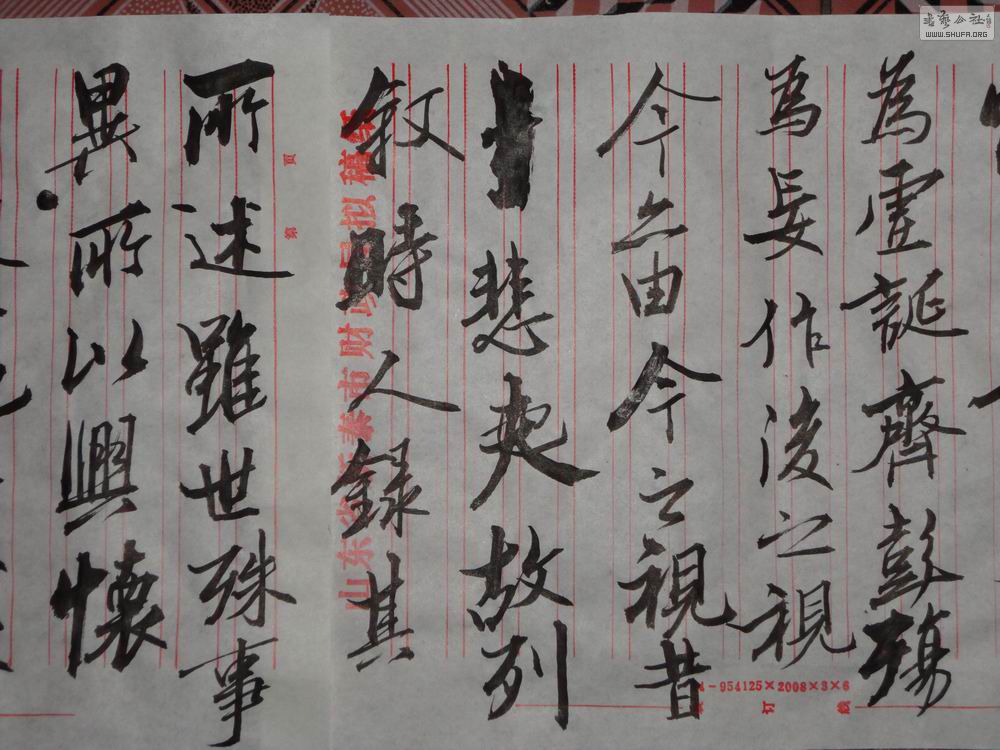 為虛誕齊彭殤
為妄作後之視
今亦由今之視昔
悲夫故列
敘時人錄其
所述雖世殊事
異所以興懷
山东省新泰市财政局拟稿纸
第 页
-954125×2008×3×6
订 线
書藝公社
WWW.SHUFA.ORG